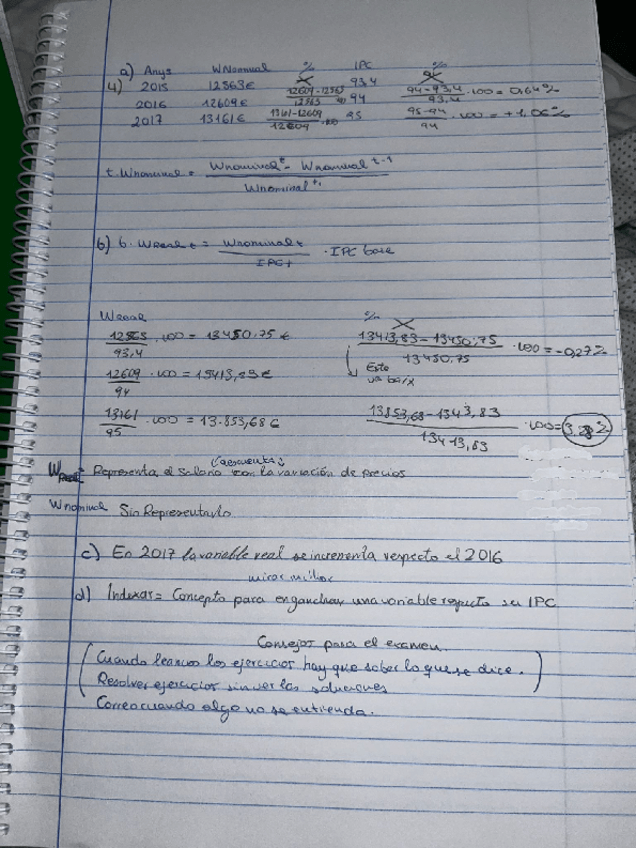 a) Anys WNominal % IPC %
4) 2015 12563€ 93,4
2016 12609€ 12609-12563/12563 ·100 94 94-93,4/93,4 ·100= 0,64%
2017 13161€ 13161-12609/12609 ·100 95 95-94/94 ·100= +1,06%
t. Wnominal = Wnominal t - Wnominal t-1 / Wnominal t-1
b) 6. Wreal t = Wnominal t / IPC t · IPC base
Wreal %
12563/93,4 ·100 = 13450,75 € 13413,83-13450,75/13450,75 ·100=-0,27%
Este va bajx
12609/94 ·100 = 13413,83€
13161/95 ·100 = 13.853,68€ 13853,68-13413,83/13413,83 ·100= 3,28%
(descuenta)
Wreal = Representa, el salario con la variación de precios
Wnominal Sin Representarlo
c) En 2017 la variable real se incrementa respecto el 2016
mirar millor
d) Indexar = Concepto para enganchar una variable respecto su IPC
Consejos para el examen.
Cuando leamos los ejercicios hay que saber lo que se dice.
Resolver ejercicios sin ver las soluciones
Correo cuando algo no se entienda.